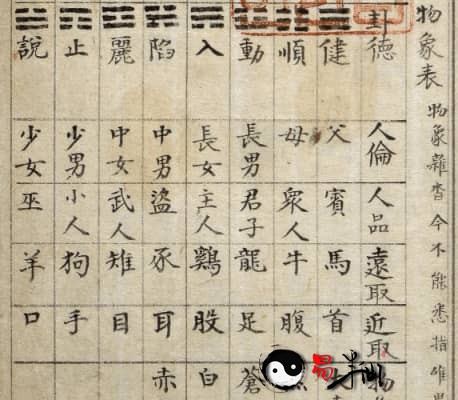 物象表 物象雜沓今不能悉指作
卦德 人倫 人品 遠取 近取 物
健 父 賓 馬 首
順 母 眾人 牛 腹
動 長男 君子 龍 足 蒼
入 長女 主人 鷄 股 白
陷 中男 盜 豕 耳 赤
麗 中女 武人 雉 目
止 少男 小人 狗 手
說 少女 巫 羊 口
易